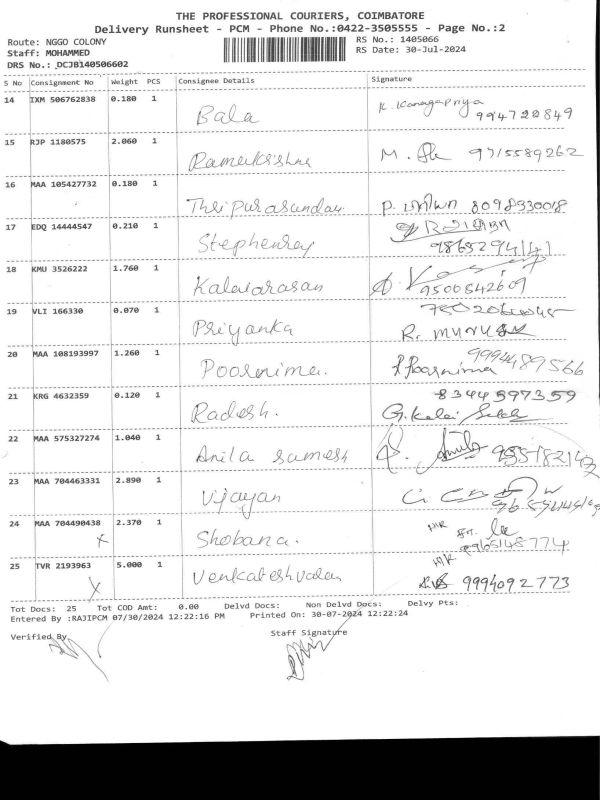 THE PROFESSIONAL COURIERS, COIMBATORE
Delivery Runsheet - PCM - Phone No.:0422-3505555 - Page No.:2
Route: NGGO COLONY
RS No.: 1405066
Staff: MOHAMMED
RS Date: 30-Jul-2024
DRS No.: DCJB140506602
S No Consignment No Weight PCS Consignee Details Signature
14 IXM 506762838 0.180 1 Bala K. Kanagapriya 9947220849
15 RJP 1180575 2.060 1 Ramakrishna M. 9715589262
16 MAA 105427732 0.180 1 Thripurasundari P. 8098330018
17 EDQ 14444547 0.210 1 Stephenrey
9865294141
18 KMU 3526222 1.760 1 Kalaiarasan
9500542609
19 VLI 166330 0.070 1 Priyanka
R.
20 MAA 108193997 1.260 1 Poornima. Poornima 9994489566
21 KRG 4632359 0.120 1 Radesh. 8344597359
G. Kalai
22 MAA 575327274 1.040 1 Anila sumesh
23 MAA 704463331 2.890 1 Vijayan
24 MAA 704490438 2.370 1 Shobana. H/R
X 8965148774
25 TVR 2193963 5.000 1 Venkateshvalan H/R
X 9994092773
Tot Docs: 25 Tot COD Amt: 0.00 Delvd Docs: Non Delvd Docs: Delvy Pts:
Entered By :RAJIPCM 07/30/2024 12:22:16 PM Printed On: 30-07-2024 12:22:24
Verified By Staff Signature